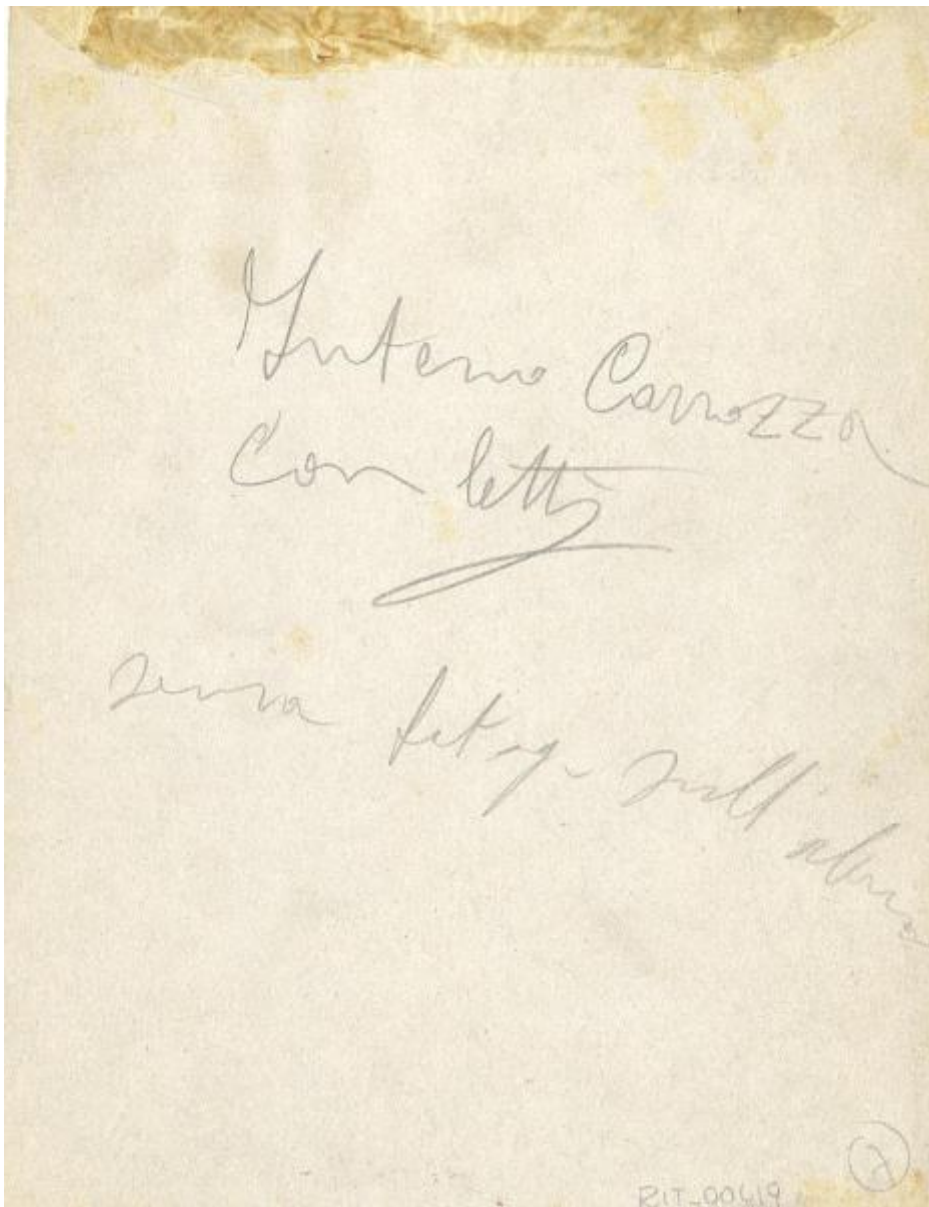 Interno Carrozza
con letti
senza fotog. sull'album
RIT-00419